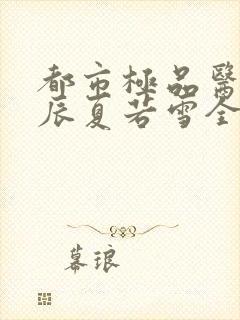 都市極品醫
辰夏若雪全
幕琅